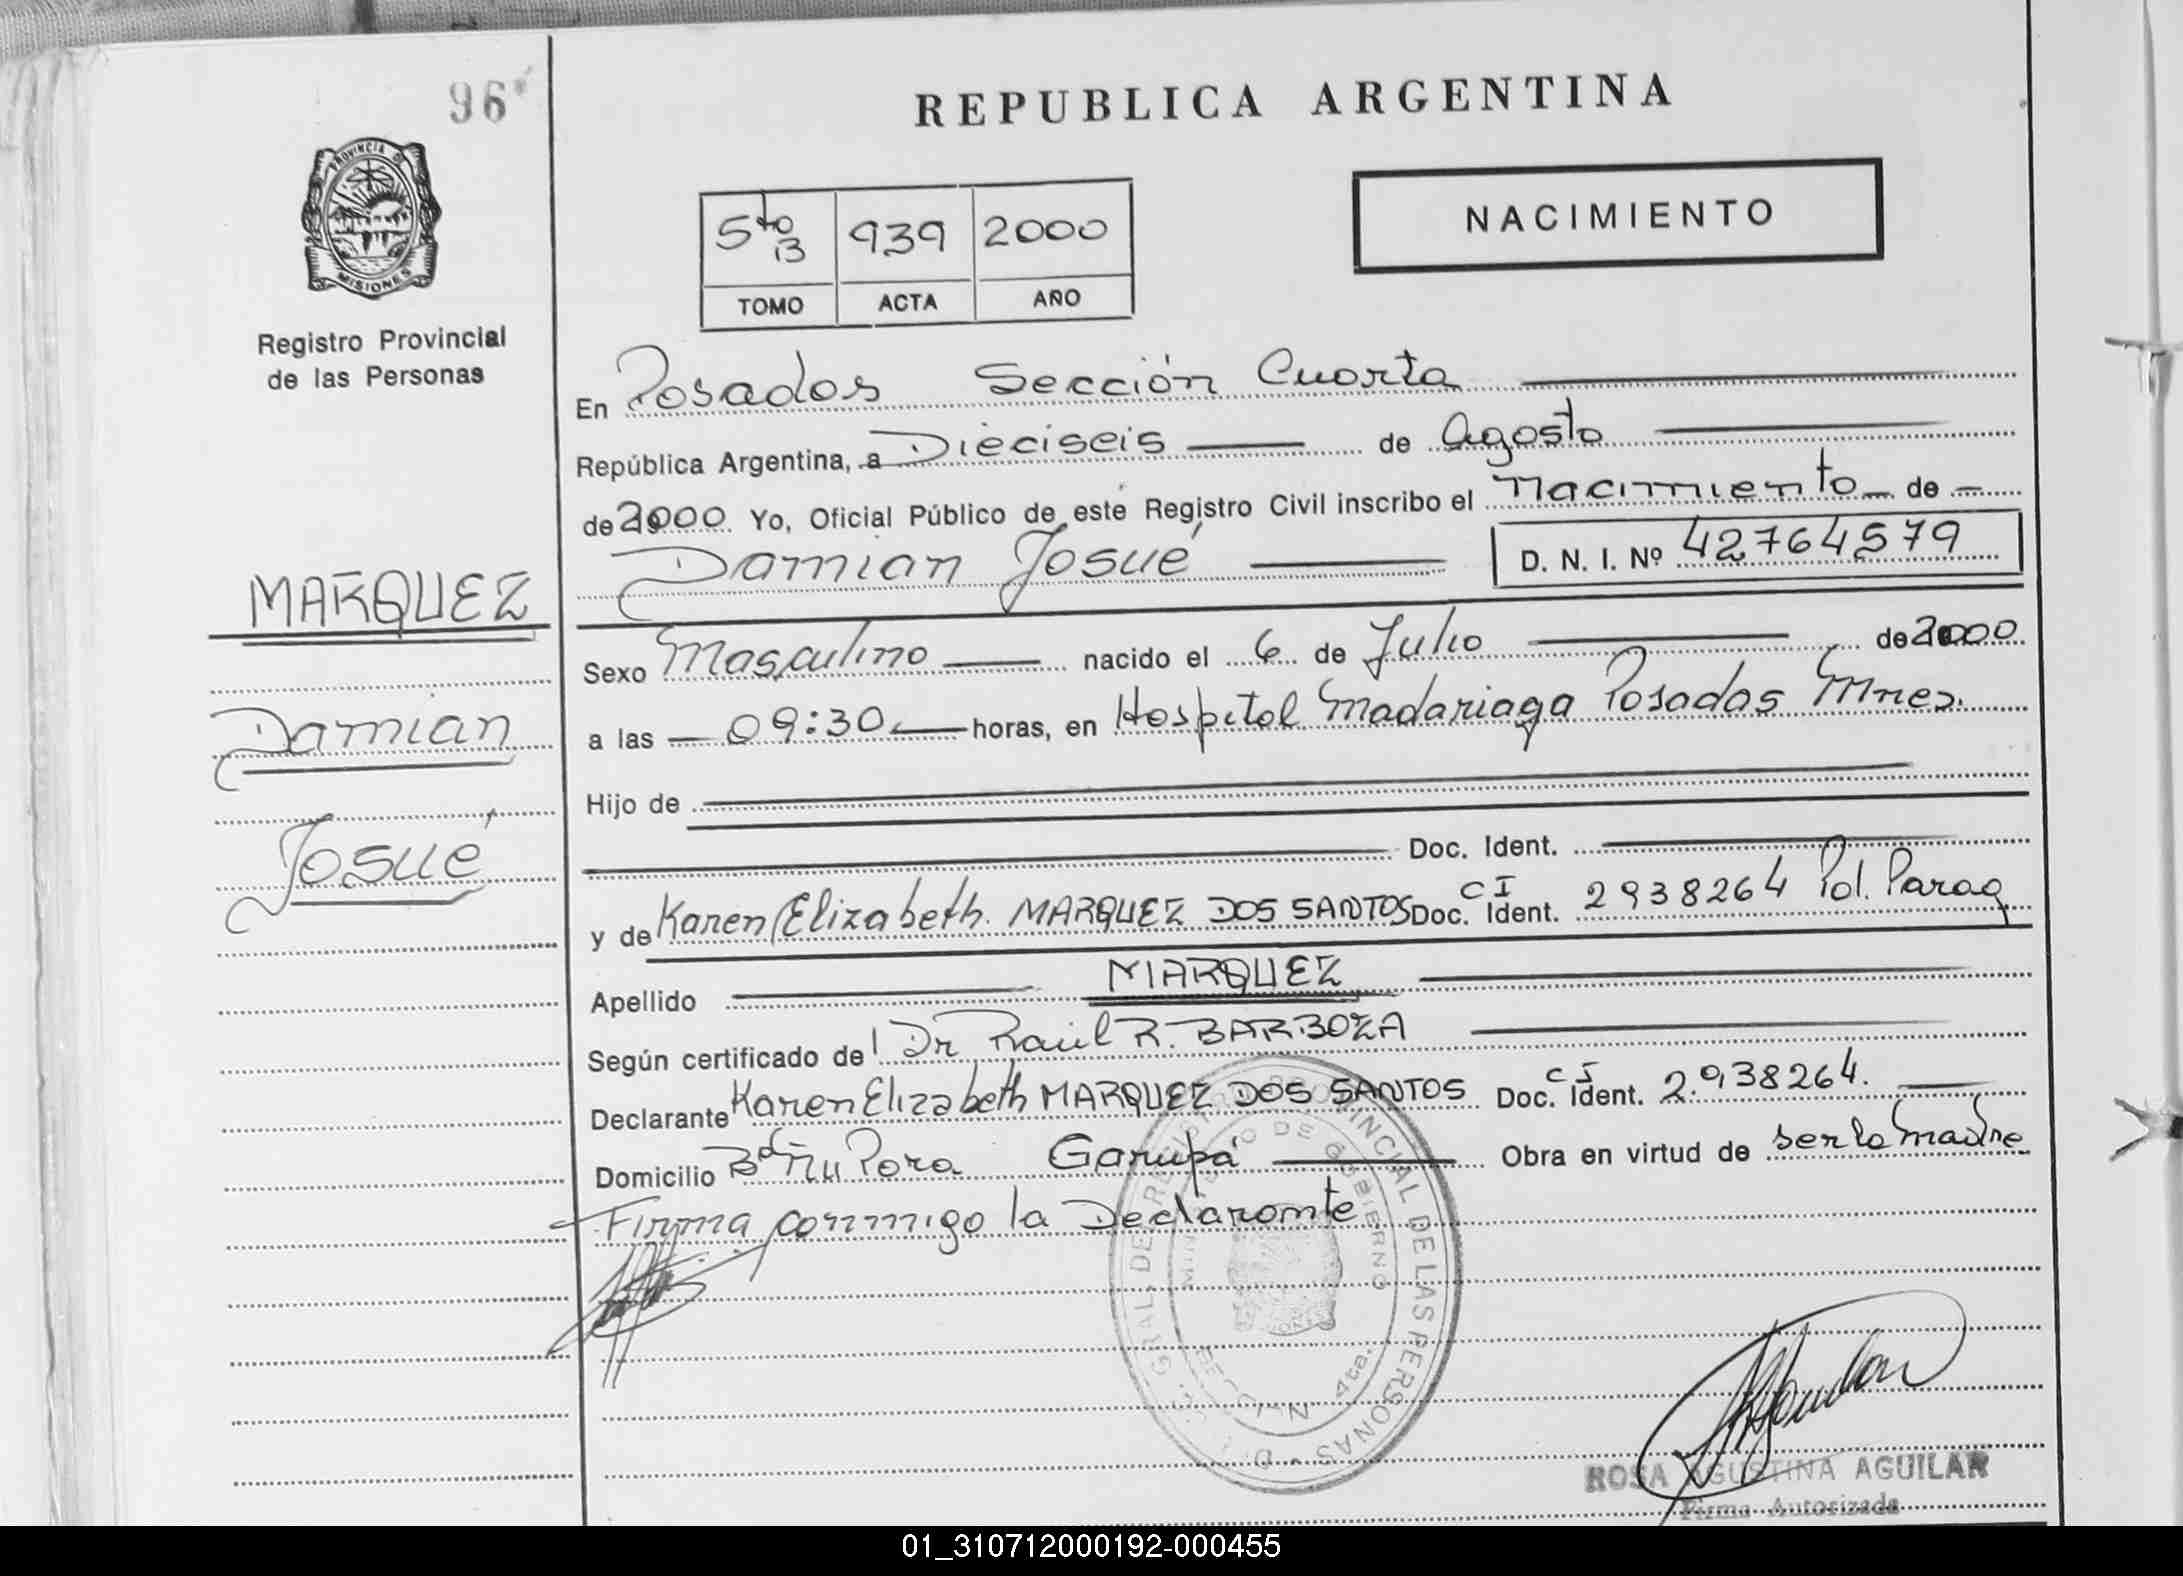 96
REPUBLICA ARGENTINA
PROVINCIA DE
MISIONES
Registro Provincial
de las Personas
5to 939 2000
13
TOMO ACTA AÑO
NACIMIENTO
En Posadas Sección Cuarta
República Argentina, a Dieciseis de Agosto
de 2000 Yo, Oficial Público de este Registro Civil inscribo el Nacimiento de
Damian Josué D. N. I. Nº 42764579
MARQUEZ
Damian
Josué
Sexo Masculino nacido el 6 de Julio de 2000
a las 09:30 horas, en Hospital Madariaga Posadas Mnes.
Hijo de
Doc. Ident.
y de Karen Elizabeth. MARQUEZ DOS SANTOS Doc. Ident. CI 2938264 Pol. Parag
Apellido MARQUEZ
Según certificado de Dr Raúl R. BARBOZA
Declarante Karen Elizabeth MARQUEZ DOS SANTOS Doc. Ident. CI 2.938264.
Domicilio Bº Ñu Pora Garupá Obra en virtud de ser la madre
Firma conmigo la Declarante
MINISTERIO DE GOBIERNO
4ta.
ROSA AGUSTINA AGUILAR
Firma Autorizada
01_310712000192-000455